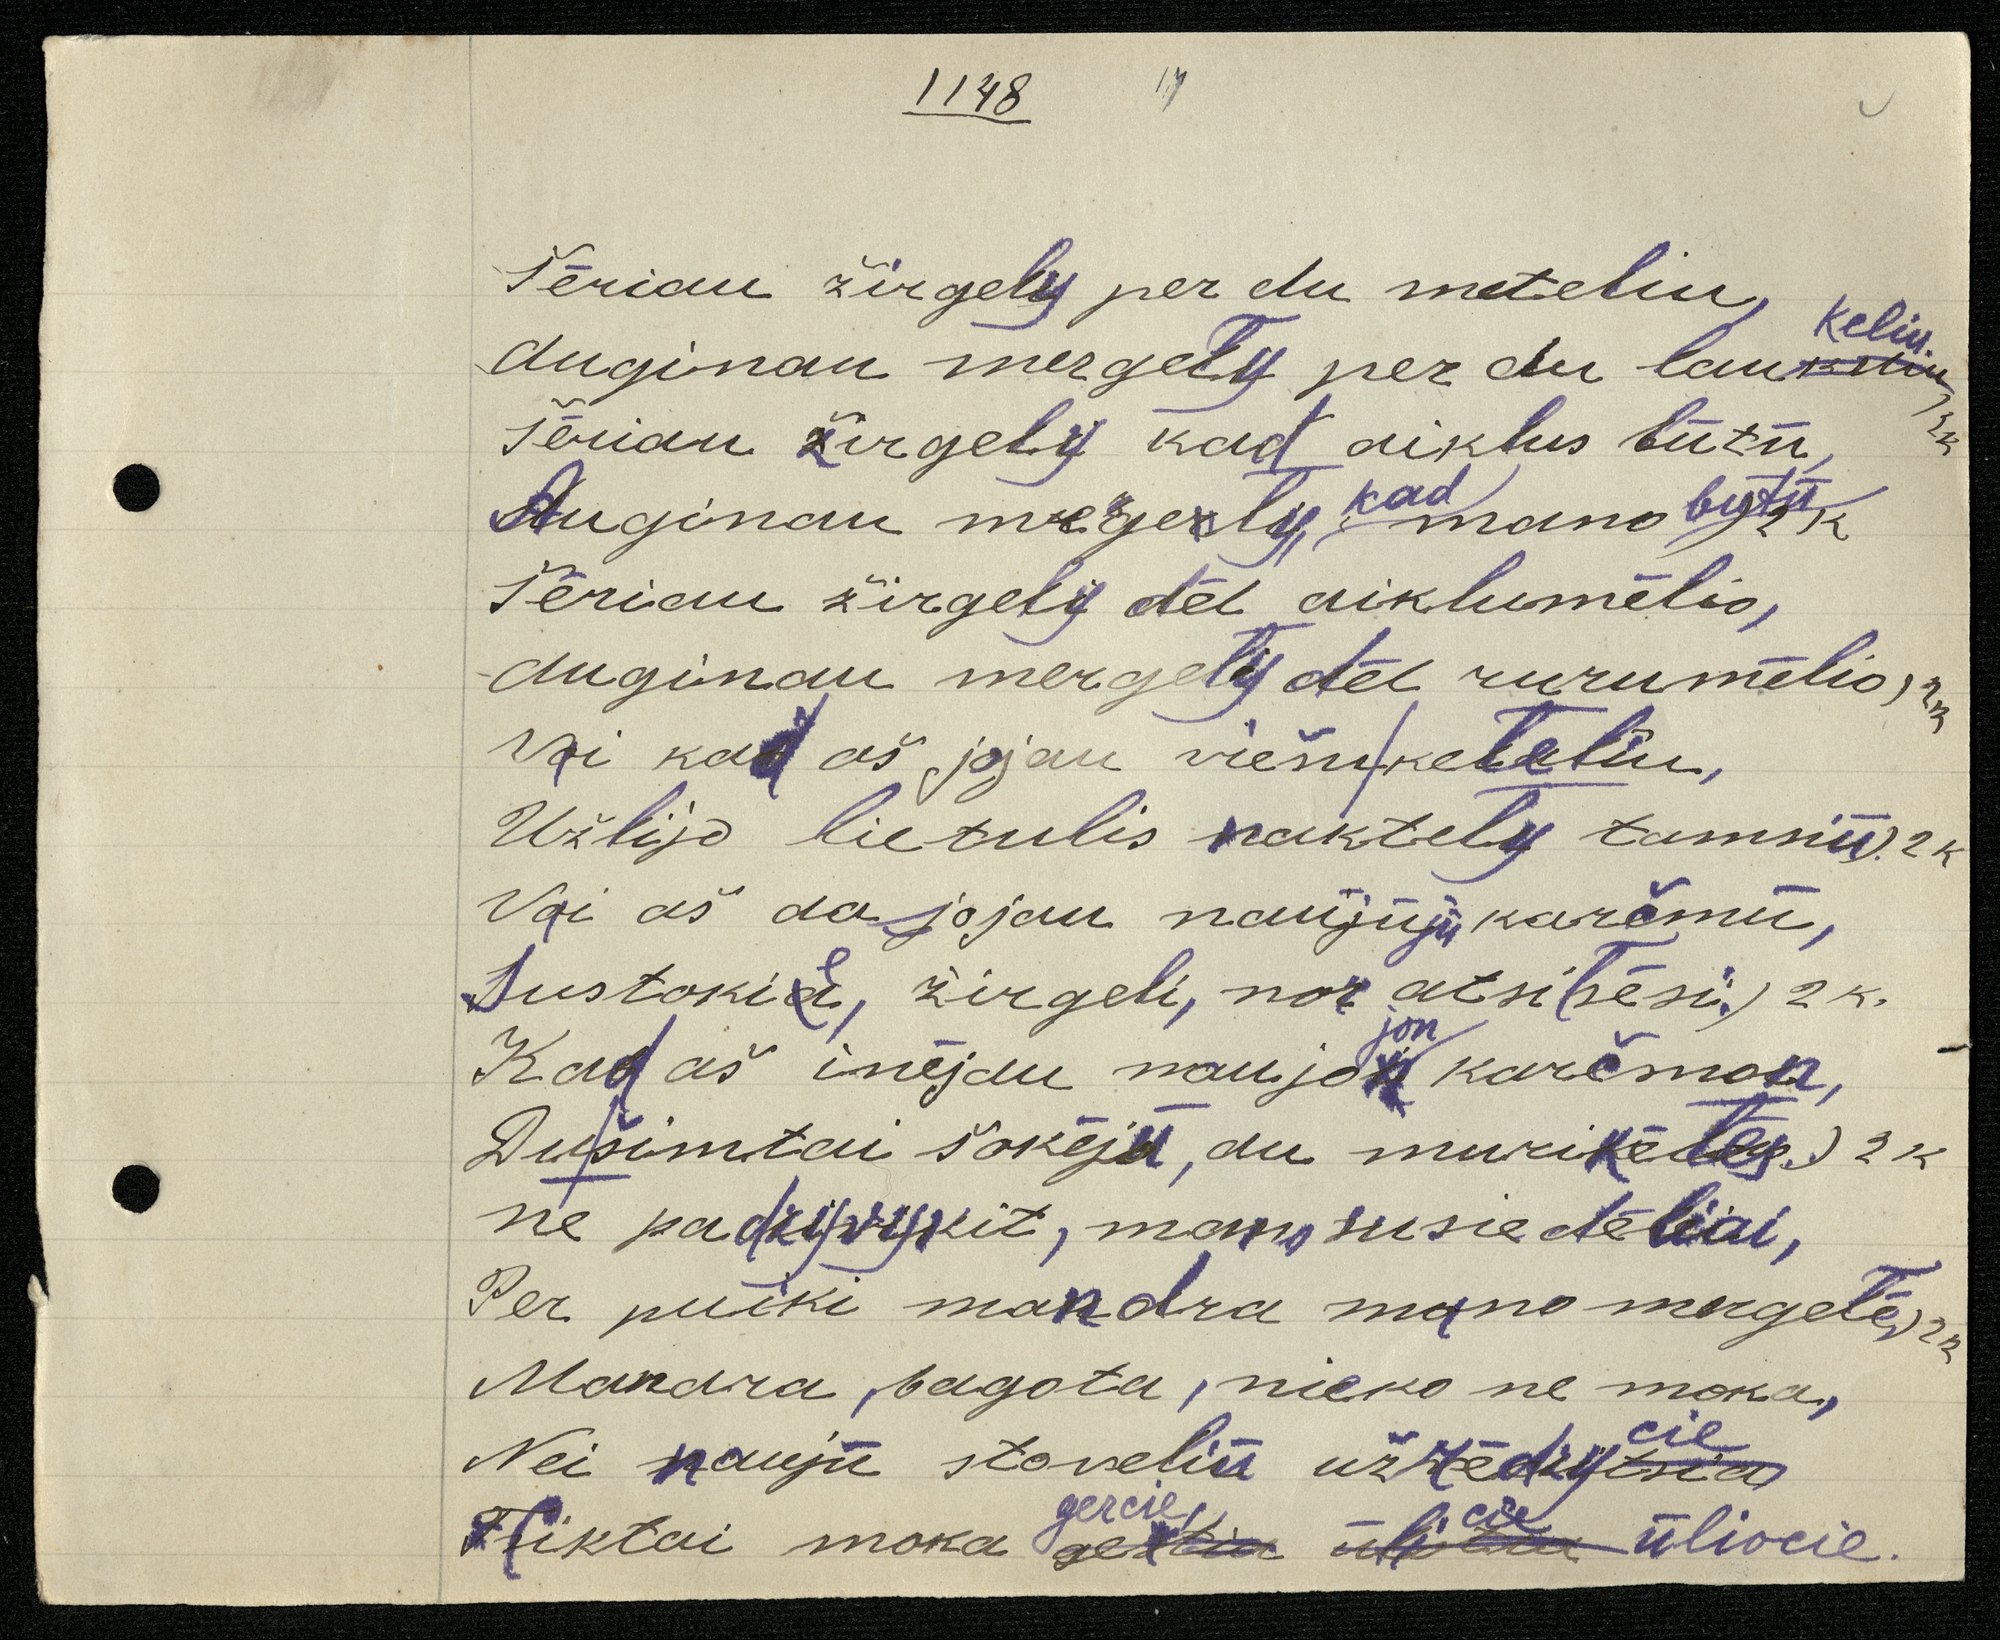 1148 17
Šėriau žirgely per du meteliu,
Auginau mergely per du laukeliu. ) 2k
Šėriau žirgely kad aiklus būtū,
Auginau mergely, kad mano bytū ) 2 k
Šėriau žirgely dėl aiklumėlio,
Auginau mergely dėl rurumėlio ) 2k
Vai kad aš jojau viešu keleliu,
Užlijo lietulis naktely tamsiū ). 2 k
Vai aš da jojau naūjūjū karčmū,
Sustokie, žirgeli, nor atsilsėsi. ) 2 k.
Kad aš inėjau naujojon karčmon,
Du šimtai šokėjū, du murikėles. ) 2 k
ne padyvykit, mano susiedėliai,
Per puiki mandra mano mergelė, ) 2k
Mandra, bagota, nieko ne moka,
Nei naujū stoveliū užrėdycie
Tiktai moka gercie, ūliocie.